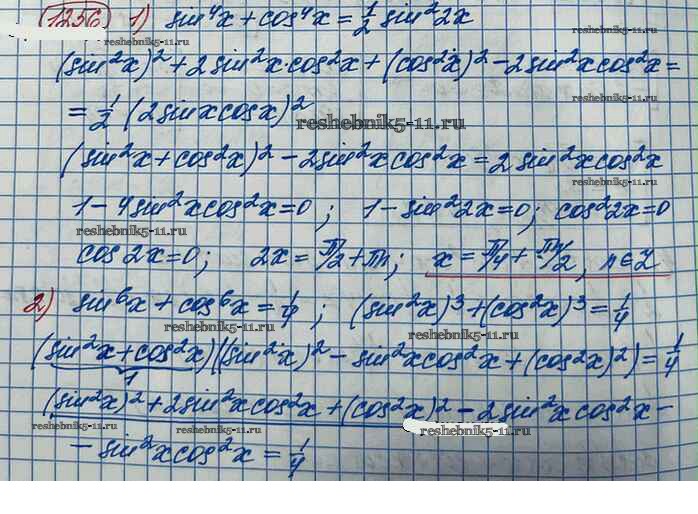 1256 1) sin⁴x + cos⁴x = 1/2 sin²2x
reshebnik5-11.ru
(sin²x)² + 2sin²x·cos²x + (cos²x)² − 2sin²xcos²x =
reshebnik5-11.ru reshebnik5-11.ru
= 1/2 (2sinxcosx)²
reshebnik5-11.ru
(sin²x + cos²x)² − 2sin²xcos²x = 2sin²xcos²x
reshebnik5-11.ru
1 − 4sin²xcos²x = 0 ; 1 − sin²2x = 0; cos²2x = 0
reshebnik5-11.ru reshebnik5-11.ru
cos2x = 0; 2x = π/2 + πn; x = π/4 + πn/2, n∈Z
reshebnik5-11.ru
2) sin⁶x + cos⁶x = 1/4 ; (sin²x)³ + (cos²x)³ = 1/4
reshebnik5-11.ru reshebnik5-11.ru
(sin²x + cos²x)((sin²x)² − sin²xcos²x + (cos²x)²) = 1/4
1
(sin²x)² + 2sin²xcos²x + (cos²x)² − 2sin²xcos²x −
reshebnik5-11.ru reshebnik5-11.ru
− sin²xcos²x = 1/4